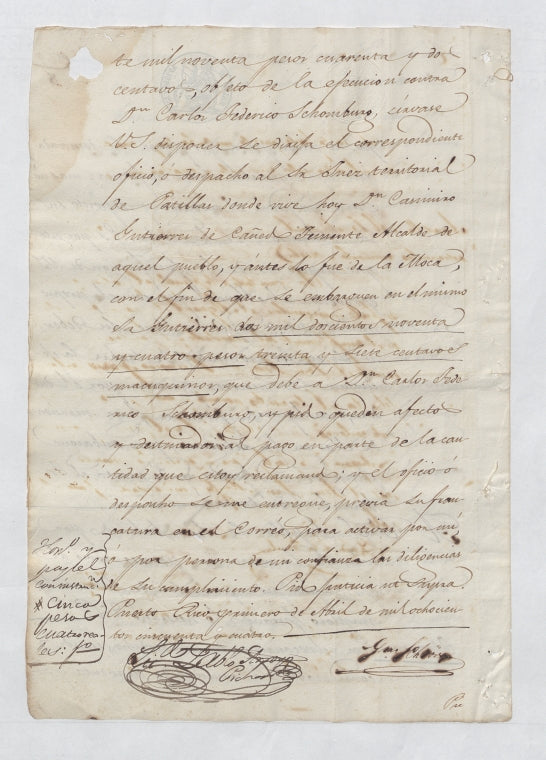 te mil noventa pesos cuarenta y dos
centavos, objeto de la ejecucion contra
Dn. Carlos Federico Schomburg, sírvase
V.S. disponer se dirija el correspondiente
oficio, o despacho al Sr Juez territorial
de Patillas donde vive hoy Dn. Casimiro
Gutierrez de Cañed Teniente Alcalde de
aquel pueblo, y ántes lo fué de la Moca,
con el fin de que se embarguen en el mismo
Sr Gutierrez dos mil doscientos noventa
y cuatro pesos treinta y siete centavos
macuquinos, que debe á Dn. Carlos Fede
rico Schomburg, y pid queden afectos
y destinados al pago en parte de la can
tidad que estoy reclamand; y el oficio ó
despacho se me entregue, previa su fran
catura en el Correo, para activar por mí
ó por persona de mi confianza las diligencias
de su cumplimiento. Pido justicia
Puerto Rico primero de Abril de mil ochocien
tos cincuenta y cuatro.
y
papel
cinco
pesos
cuatro rea
les: